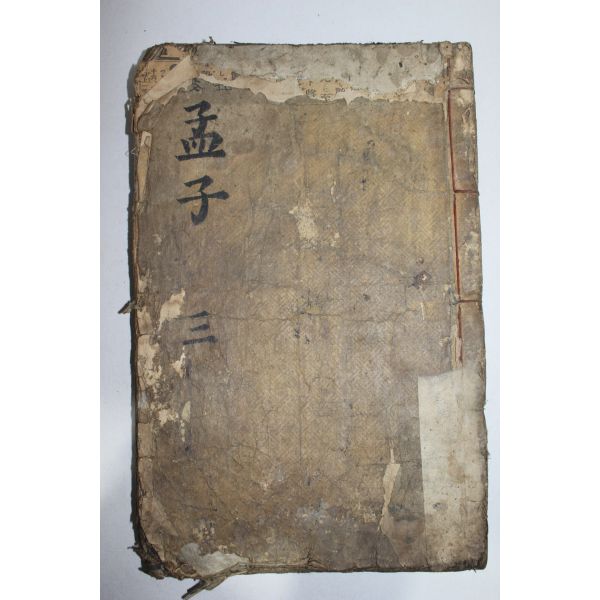 孟子
三